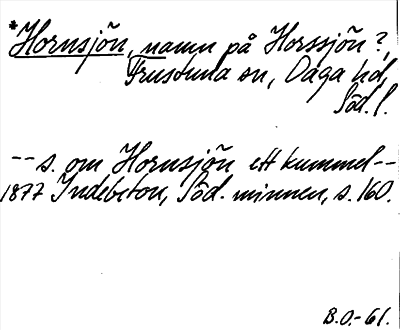 *Hornsjön, namn på Horssjön?,
Frustuna sn, Daga hd,
Söd. l.
-- s. om Hornsjön ett kummel --
1877 Indebetou, Söd. minnen, s. 160.
B.O.-61.